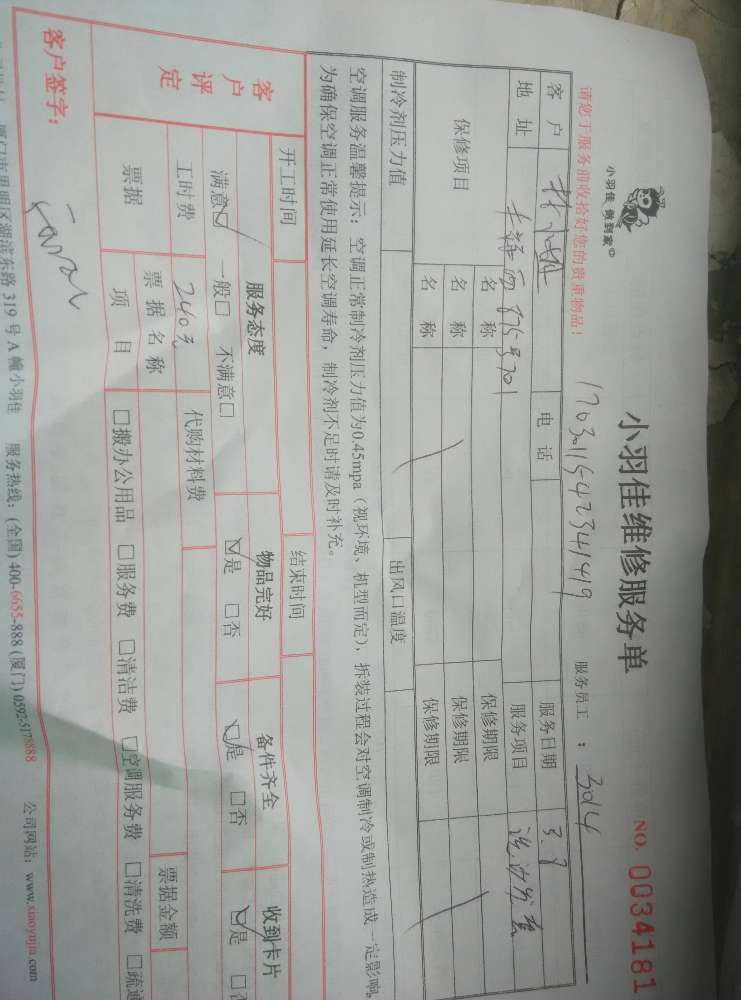 小羽佳 做到家
小羽佳维修服务单
NO. 0034181
170301154234 1419
服务员工 : 3014
请您于服务前收拾好您的贵重物品!
客户 电话 服务日期 3.9
地址 701 服务项目 洗沙发
保修项目 名称 保修期限
名称 保修期限
名称 保修期限
制冷剂压力值 出风口温度
空调服务温馨提示:空调正常制冷剂压力值为0.45mpa(视环境、机型而定),拆装过程会对空调制冷或制热造成一定影响,
为确保空调正常使用延长空调寿命,制冷剂不足时请及时补充。
开工时间 结束时间
客户评定 服务态度 物品完好 备件齐全 收到卡片
满意☑ 一般□ 不满意□ ☑是 □否 ☑是 □否 ☑是 □否
工时费 240元 代购材料费
票据 票据名称 票据金额
项目 □搬办公用品 □服务费 □清洁费 □空调服务费 □清洗费 □疏通
客户签字: Sarah
厦门市思明区湖滨东路 319 号 A 幢小羽佳 服务热线:(全国) 400-6655-888 (厦门) 0592-5178888 公司网站:www.xiaoyujia.com